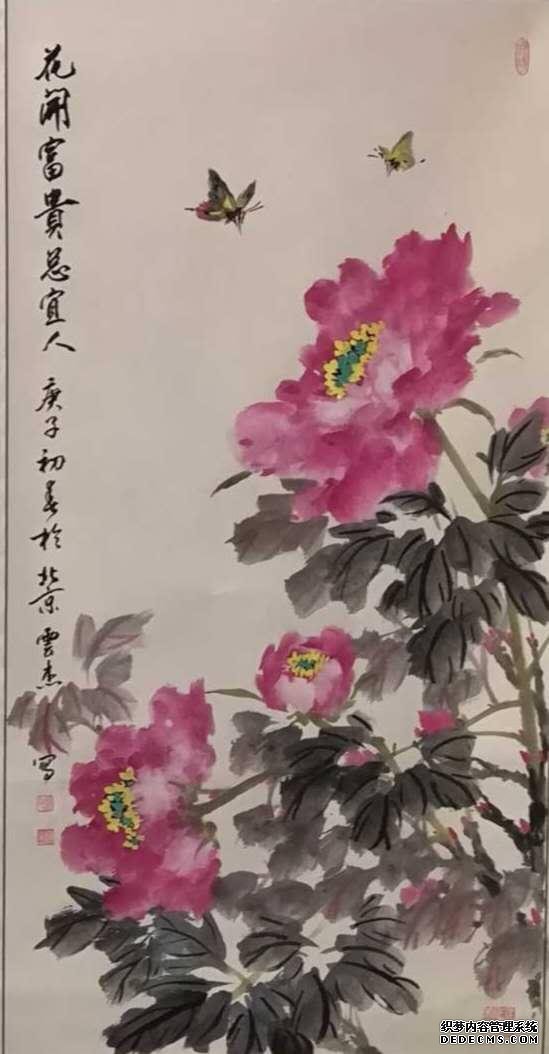 花開富貴总宜人 庚子初春於北京 雲杰寫
织梦内容管理系统
DEDECMS.COM